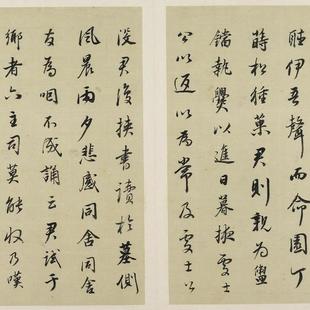 聽伊吾聲而命園丁
蒔松種菊君則親為盥
鐺執爨以進日暮掖處士
公以返以為常及處士公
沒君復挾書讀於墓側
風晨雨夕悲感同舍同舍
友為咽不成誦云君試于
鄉者六主司莫能收乃嘆